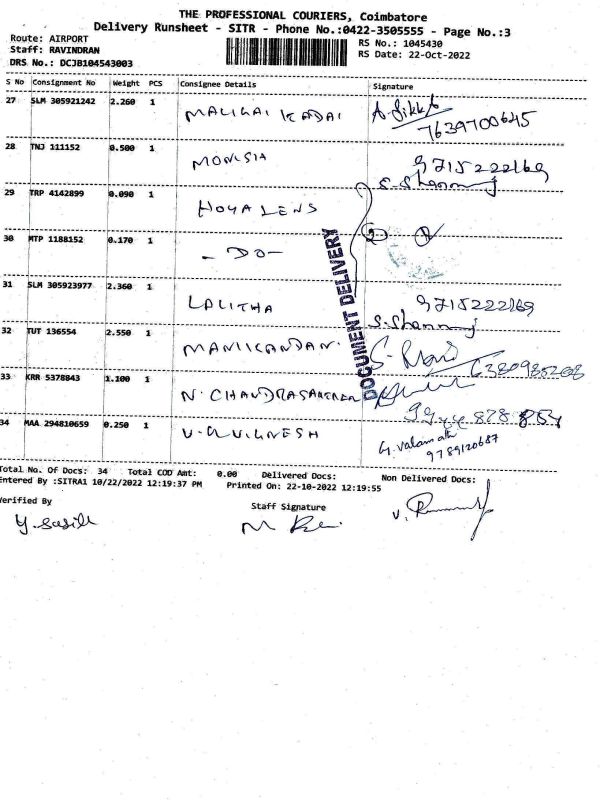 THE PROFESSIONAL COURIERS, Coimbatore
Delivery Runsheet - SITR - Phone No.:0422-3505555 - Page No.:3
Route: AIRPORT
RS No.: 1045430
Staff: RAVINDRAN
RS Date: 22-Oct-2022
DRS No.: DCJB104543003
S No Consignment No Weight PCS Consignee Details Signature
27 SLM 305921242 2.260 1 MALIGAI KADAI
7639700645
28 TNJ 111152 0.500 1 MONISIA 9715222169
29 TRP 4142899 0.090 1 HOYA LENS
30 MTP 1188152 0.170 1 - DO -
DOCUMENT DELIVERY
31 SLM 305923977 2.360 1 LALITHA 9715222169
32 TUT 136554 2.550 1 MANIKANDAN
33 KRR 5378843 1.100 1 N. CHANDRASAKERAN
34 MAA 294810659 0.250 1 V. G. VIGNESH G. Valamathi
9789120687
Total No. Of Docs: 34 Total COD Amt: 0.00 Delivered Docs: Non Delivered Docs:
Entered By :SITRA1 10/22/2022 12:19:37 PM Printed On: 22-10-2022 12:19:55
Verified By Staff Signature